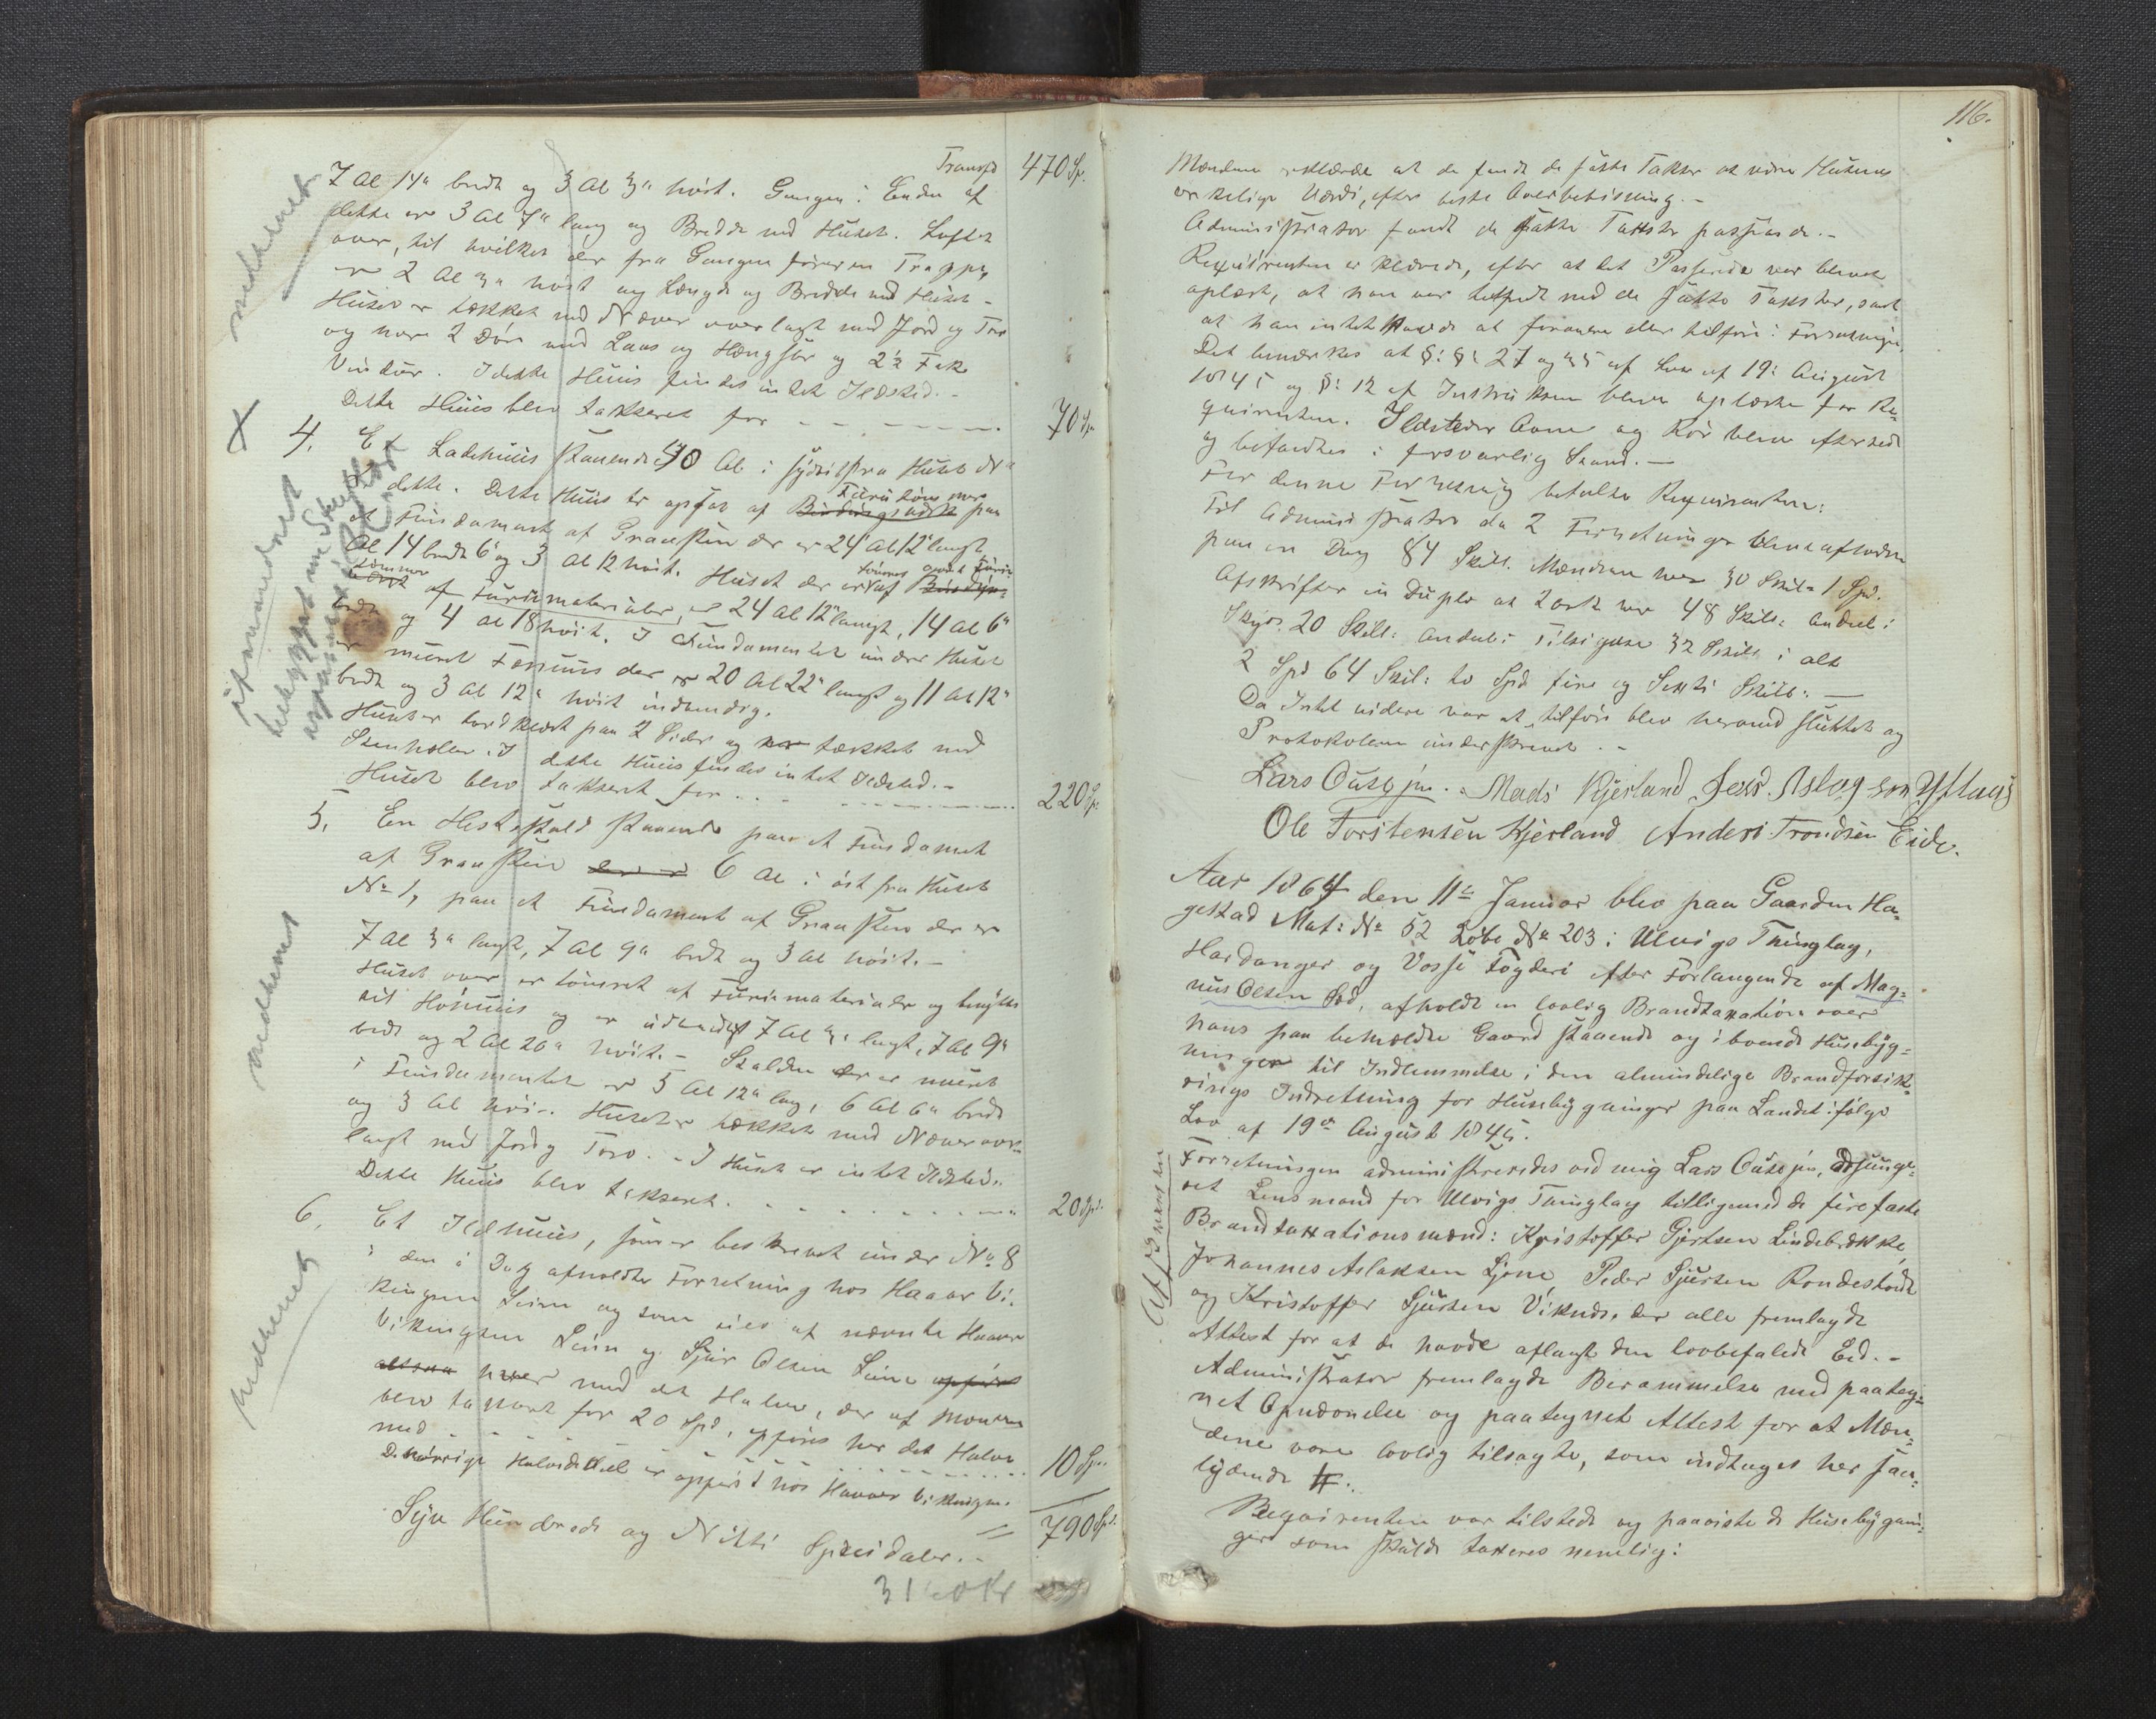 Transpd 470 Sp.
7 Al 14" bredt og 3 Al 3" høit. Gangen i Enden af
dette er 3 Al 7" lang og Bredde med Huset. Loftet
over, til hvilket der fra Gangen fører en Trappe,
er 2 Al 3" høit og Længde og Bredde med Huset –
Huset er tækket med Næver overlagt med Jord og Torv
og har 2 Døre med Laas og Hængsler og 2½ Fak
Vinduer. I dette Huus findes intet Ildsted. –
Dette Huus blev takseret for - - - - - 70 Sp
nedbrent
4. Et Ladehuus staaende 90 Al i sydvest fra Huset No
dette. Dette Huus er opsat af Bindingsværk paa
et Fundament af Graasteen der er 24 Al 12" langt
Al 14 bredt 6" og 3 Al 12 høit. Huset der er af
tømmer af Furumaterialer, er 24 Al 12" langt, 14 Al 6"
bredt og 4 Al 18" høit. I Fundamentet under Huset
er muret Fæhuus der er 20 Al 22" langt og 11 Al 12"
bredt og 3 Al 12" høit indvendig.
Huset er bordklædt paa 2 Sider og tækket med
Steenheller. I dette Huus findes intet Ildsted. –
Huset blev takseret for - - - - - 220 Sp.
5. En Hestestald staaende paa et Fundament
af Graasteen 6 Al i øst fra Huset
No 1, paa et Fundament af Graasteen der er
7 Al 3" langt, 7 Al 9" bredt og 3 Al høit. –
Huset over er tømret af Furumaterialer og benyttes
til Høhuus og er udvendigt 7 Al 3" langt, 7 Al 9"
bredt og 2 Al 20" høit. – Stalden der er muret
i Fundamentet er 5 Al 12" lang, 6 Al 6" bred
og 3 Al høi. Huset er tækket med Næver over-
lagt med Jord og Torv. – I Huset er intet Ildsted.
Dette Huus blev takseret - - - - - 20 Spd.
nedbrent
6. Et Ildhuus, som er beskrevet under No 8
i den i Dag afholdte Forretning hos Haavar Vi-
kingsen Leinn og som eies af nævnte Haavar
Vikingsen Leinn og Sjur Olsen Leinn
altsaa hver med det Halve, der af Mændene
blev taxeret for 20 Spd, opføres her det Halve
med - - - - - 10 Spd.
Den øvrige Halvedeel er opført hos Haavar Vikingsen.
790 Spd.
Syv Hundrede og Nitti Speidaler. –
3160 Kr
nedbrent
116.
Mændene erklærede at de fandt de satte Takster at være Husenes
virkelige Værdi, efter beste Overbevisning. –
Administrator fandt de satte Takster passende. –
Requirenten erklærede, efter at det Passerede var blevet
oplæst, at han var tilfreds med de satte Takster, samt
at han intet havde at forandre eller tilføie i Forretningen.
Det bemærkes at §: §: 27 og 35 af Lov af 19: August
1845 og §: 12 af Instruksen bleve oplæste for Re-
quirenten. Ildsteder Ovne og Rør bleve efterseet
og befandtes i forsvarlig Stand. –
For denne Forretning betalte Requirenten:
Til Administrator da 2 Forretninger bleve afholdte
paa en Dag 84 Skill. Mændene hver 30 Skil = 1 Spd.
Afskrifter in Duplo at 2 ark hver 48 Skill: Andeel i
Skyds 20 Skill: Andeel i Tilsigelse 32 Skill i alt
2 Spd 64 Skil: to Spd fire og Sexti Skill: –
Da Intet videre var at tilføie blev herved sluttet og
Protokollen underskrevet. –
Lars Ouse jun. Mads Kjerland Jens Aslagson Ystaas
Ole Torstensen Kjerland Anders Trondsen Eide.
Aar 1864 den 11te Januar blev paa Gaarden Ha-
gestad Mat: No 52 Løbe No 203 i Ulvigs Thinglag,
Hardanger og Vosse Fogderi efter Forlangende af Mag-
nus Olsen afholdt en lovlig Brandtaxation over
hans paa bemeldte Gaard staaende og iboende Husebyg-
ninger til Indlemmelse i den almindelige Brandforsik-
rings Indretning for Husebygninger paa Landet ifølge
Lov af 19de August 1845.
Forretningen administreredes ved mig Lars Ouse jun, adjunge-
ret Lensmand for Ulvigs Thinglag tilligemed de fire faste
Brandtaxationsmænd: Kristoffer Gjertsen Lindebrække,
Johannes Aslaksen Ljone, Peder Sjursen Rondestvedt
og Kristoffer Sjursen Viknes, der alle fremlagde
Attest for at de havde aflagt den lovbefalede Eed. –
Administrator fremlagde Berammelse med paateg-
net Opnævnelse og paategnet Attest for at Mæn-
dene vare lovlig tilsagte, som indtages her saa-
lydende
Requirenten var tilstede og paaviste de Husebygnin-
ger som skulde taxeres nemlig: